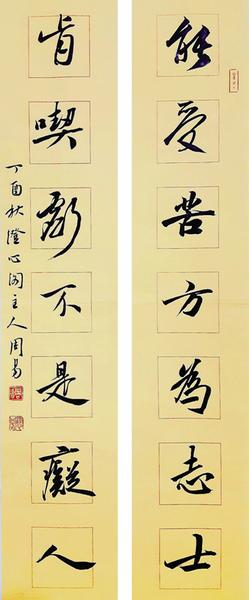 能受苦方為志士
肯喫虧不是癡人
丁酉秋澄心閣主人周易